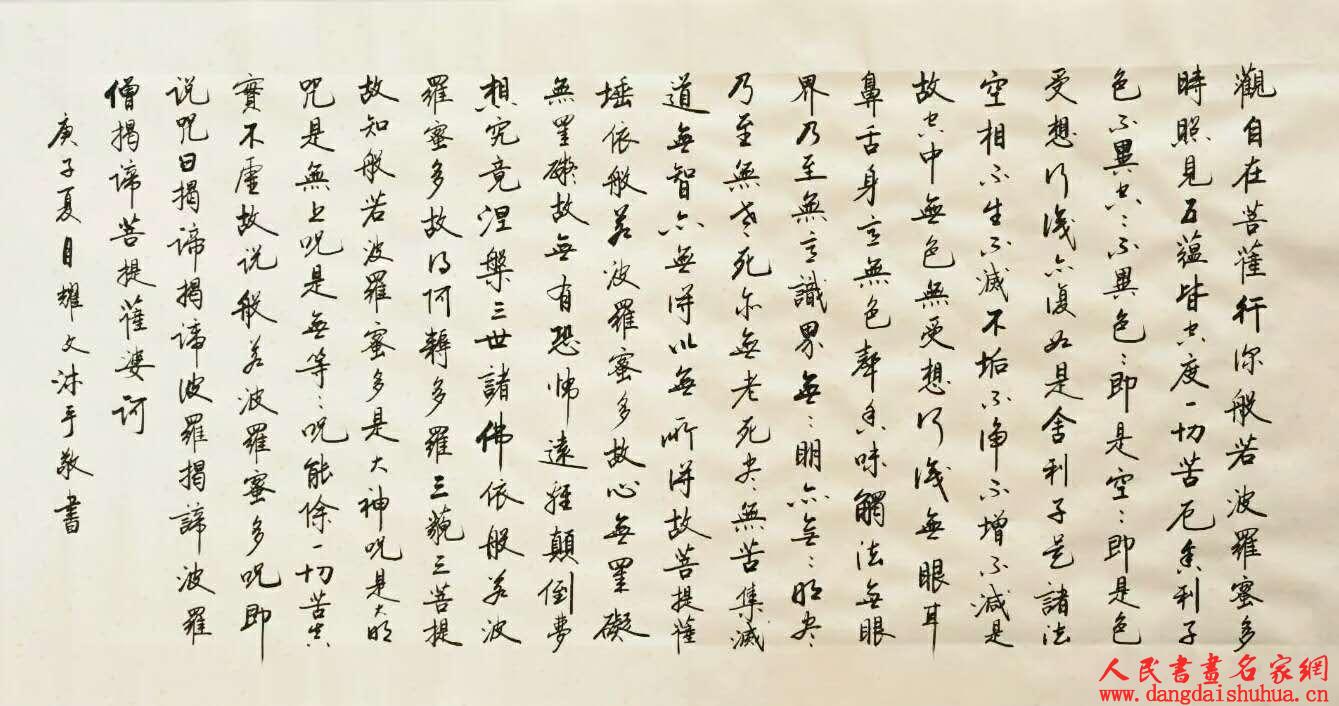 觀自在菩薩行深般若波羅蜜多
時照見五蘊皆空度一切苦厄舍利子
色不異空:不異色:即是空:即是色
受想行識亦復如是舍利子是諸法
空相不生不滅不垢不淨不增不減是
故空中無色無受想行識無眼耳
鼻舌身意無色聲香味觸法無眼
界乃至無意識界無:明亦無:明盡
乃至無老死亦無老死盡無苦集滅
道無智亦無得以無所得故菩提薩
埵依般若波羅蜜多故心無罣礙
無罣礙故無有恐怖遠離顛倒夢
想究竟涅槃三世諸佛依般若波
羅蜜多故得阿耨多羅三藐三菩提
故知般若波羅蜜多是大神咒是大明
咒是無上咒是無等:咒能除一切苦真
實不虛故说般若波羅蜜多咒即
说咒曰揭諦揭諦波羅揭諦波羅
僧揭諦菩提薩婆訶
庚子夏月耀文沐手敬書
人民書畫名家網
www.dangdaishuhua.cn